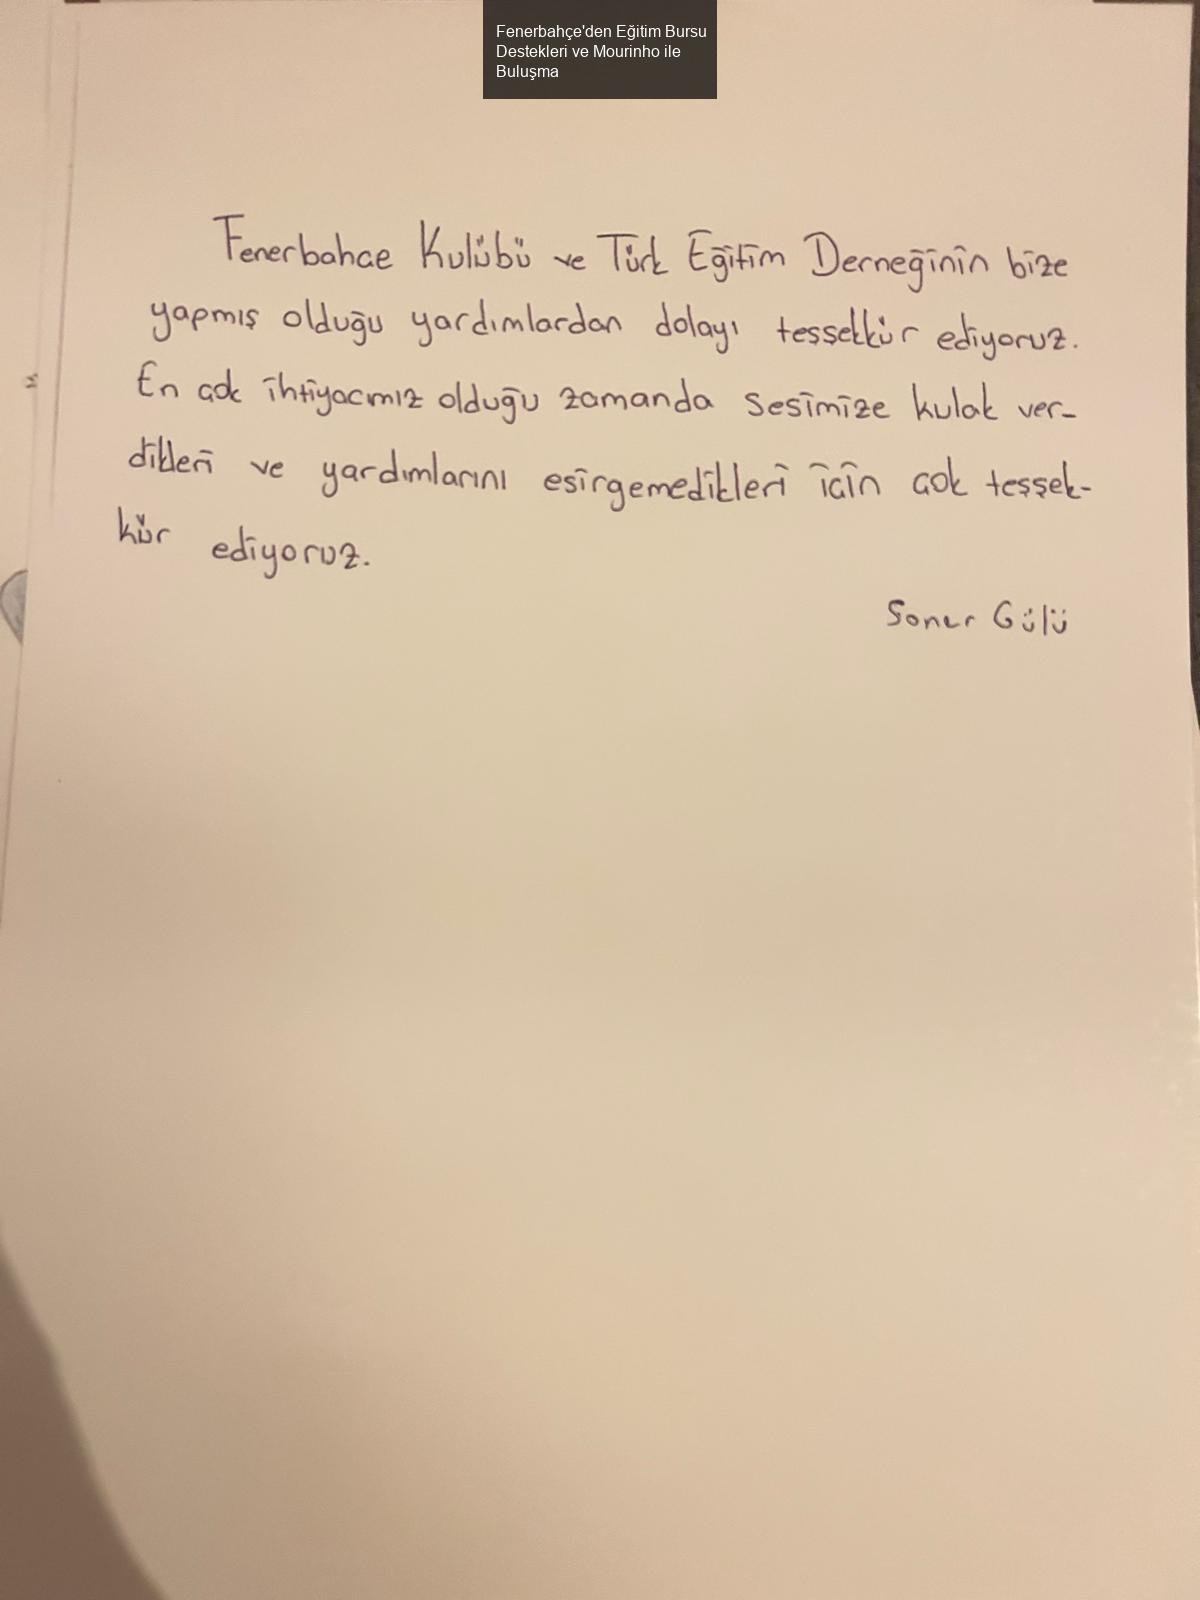 Fenerbahçe'den Eğitim Bursu
Destekleri ve Mourinho ile
Buluşma
Fenerbahce Kulübü ve Türk Eğitim Derneğinin bize
yapmış olduğu yardımlardan dolayı teşşekkür ediyoruz.
En cok ihtiyacmız olduğu zamanda sesimize kulak ver-
dikleri ve yardımlarını esirgemedikleri icin cok teşşek-
kür ediyoruz.
Soner Gülü